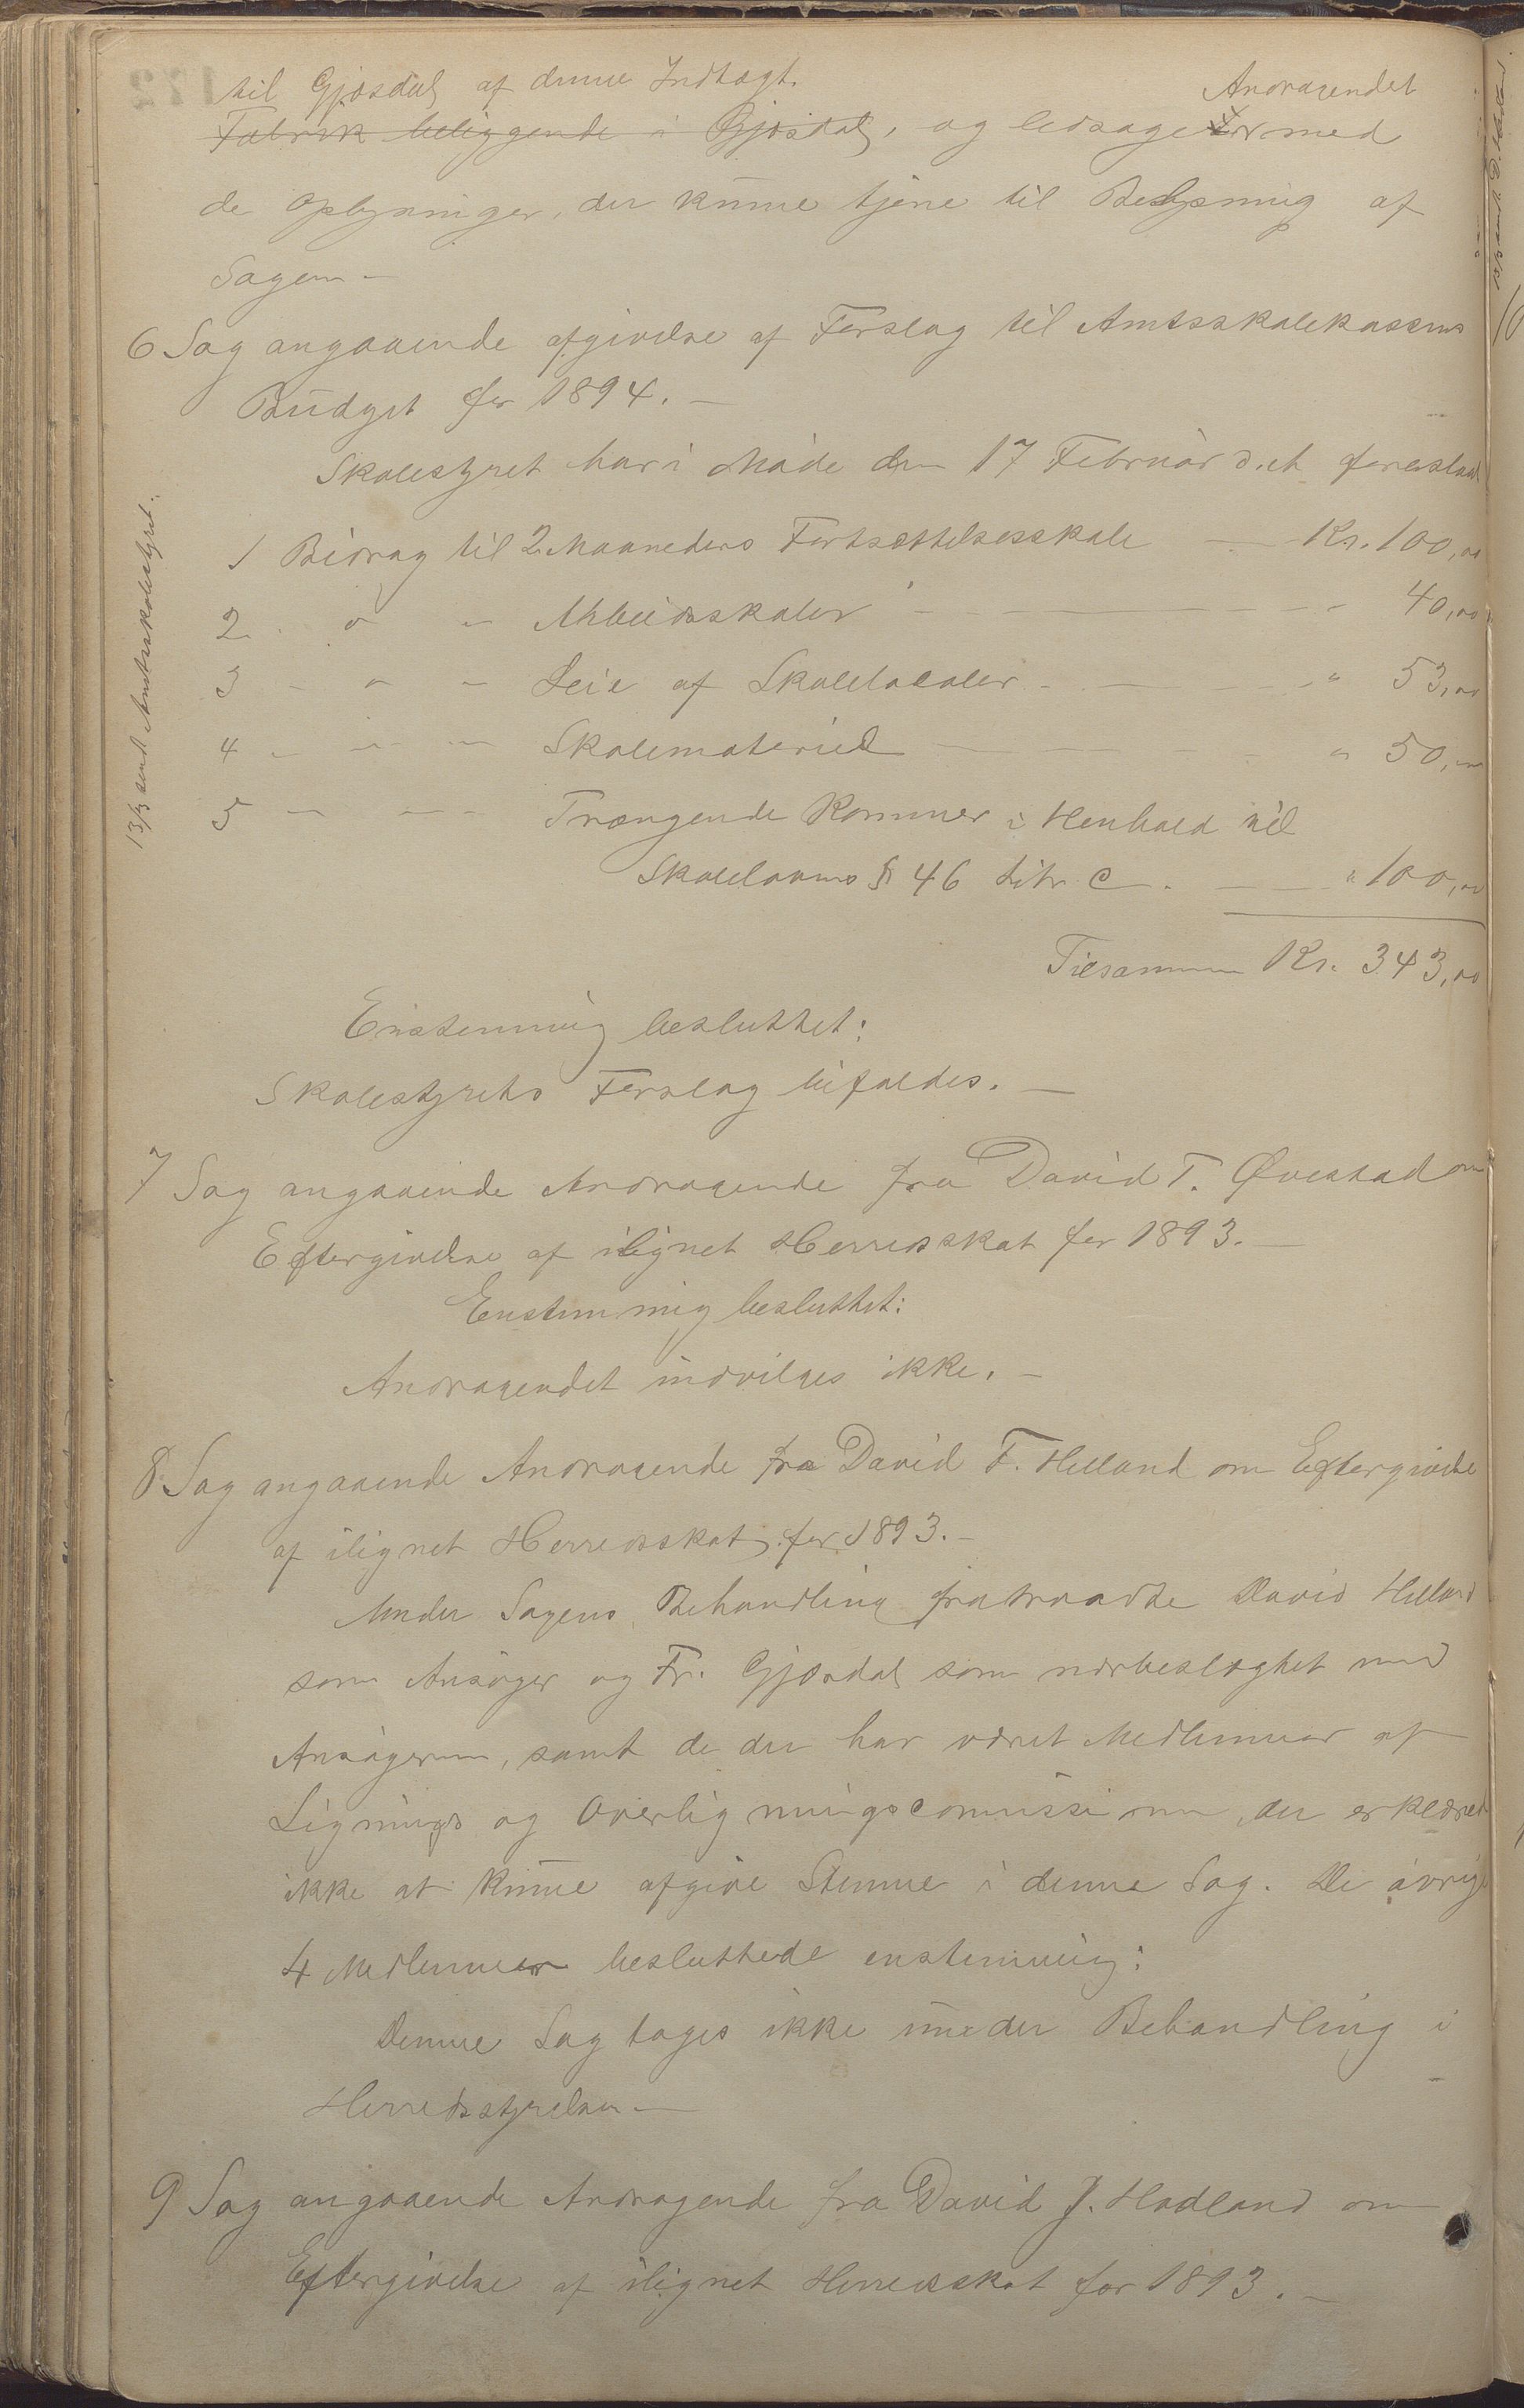 til Gjæsdal af denne Indtægt. Andragendet
Fabrik beliggende i Gjæsdal, og ledsager med
de Oplysninger, der kunne tjene til Belysning af
Sagen. -
6 Sag angaaende afgivelse af Forslag til Amtsskolekassens
Budget for 1894. -
Skolestyret har i Møde den 17 Februar d.A. foreslaaet
1 Bidrag til 2 Maaneders Fortsættelsesskole - Kr. 100,00
2 " " Arbeidsskoler - " 40,00
3 " " Leie af Skolelocaler - " 53,00
4 " " Skolemateriel - " 50,00
5 " " Trængende Kommuner i Henhold til
Skolelovens § 46 Litr C. - " 100,00
Tilsammen Kr. 343,00
13/3 sendt Amtsskolestyret.
Enstemmig besluttet:
Skolestyrets Forslag bifaldes. -
7 Sag angaaende Andragende fra David T. Øvestad om
Eftergivelse af ilignet Herredsskat for 1893. -
Enstemmig besluttet:
Andragendet indvilges ikke. -
8 Sag angaaende Andragende fra David F. Helland om Eftergivelse
af ilignet Herredsskat for 1893. -
Under Sagens Behandling fratraadte David Helland
som Ansøger og Fr. Gjæsdal som nærbeslægtet med
Ansøgeren, samt de der har været Medlemmer af
Lignings og Overligningscommissionen, der erklærede
ikke at kunne afgive Stemme i denne Sag. De øvrige
4 Medlemmer besluttede enstemmig:
Denne Sag tages ikke under Behandling i
Herredsstyrelsen -
9 Sag angaaende Andragende fra David J. Hadland om
Eftergivelse af ilignet Herredsskat for 1893. -